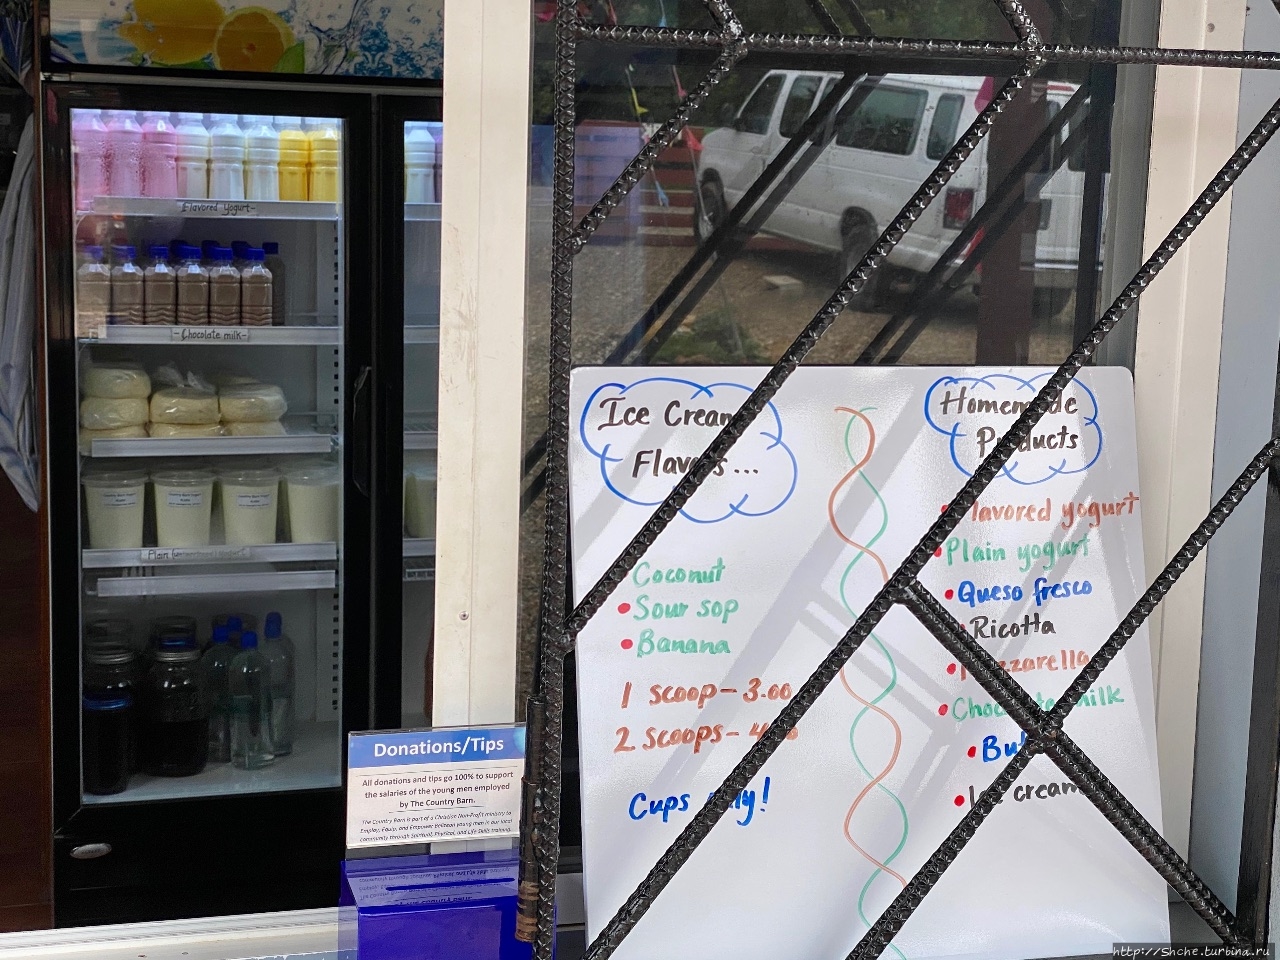 -Flavored Yogurt-
-Chocolate milk-
Plain
Donations/Tips
All donations and tips go 100% to support
the salaries of the young men employed
by The Country Barn.
The Country Barn is part of a Christian Non-Profit ministry to
Employ, Equip, and Empower Belizean young men in our local
community through Spiritual, Physical, and Life Skills training.
Ice Cream
Flavors...
Coconut
Sour sop
Banana
1 scoop-3.00
2 scoops-
Cups only!
Homemade
Products
Flavored yogurt
Plain yogurt
Queso fresco
Ricotta
Mozzarella
Chocolate milk
Ice cream
http://Shche.turbina.ru